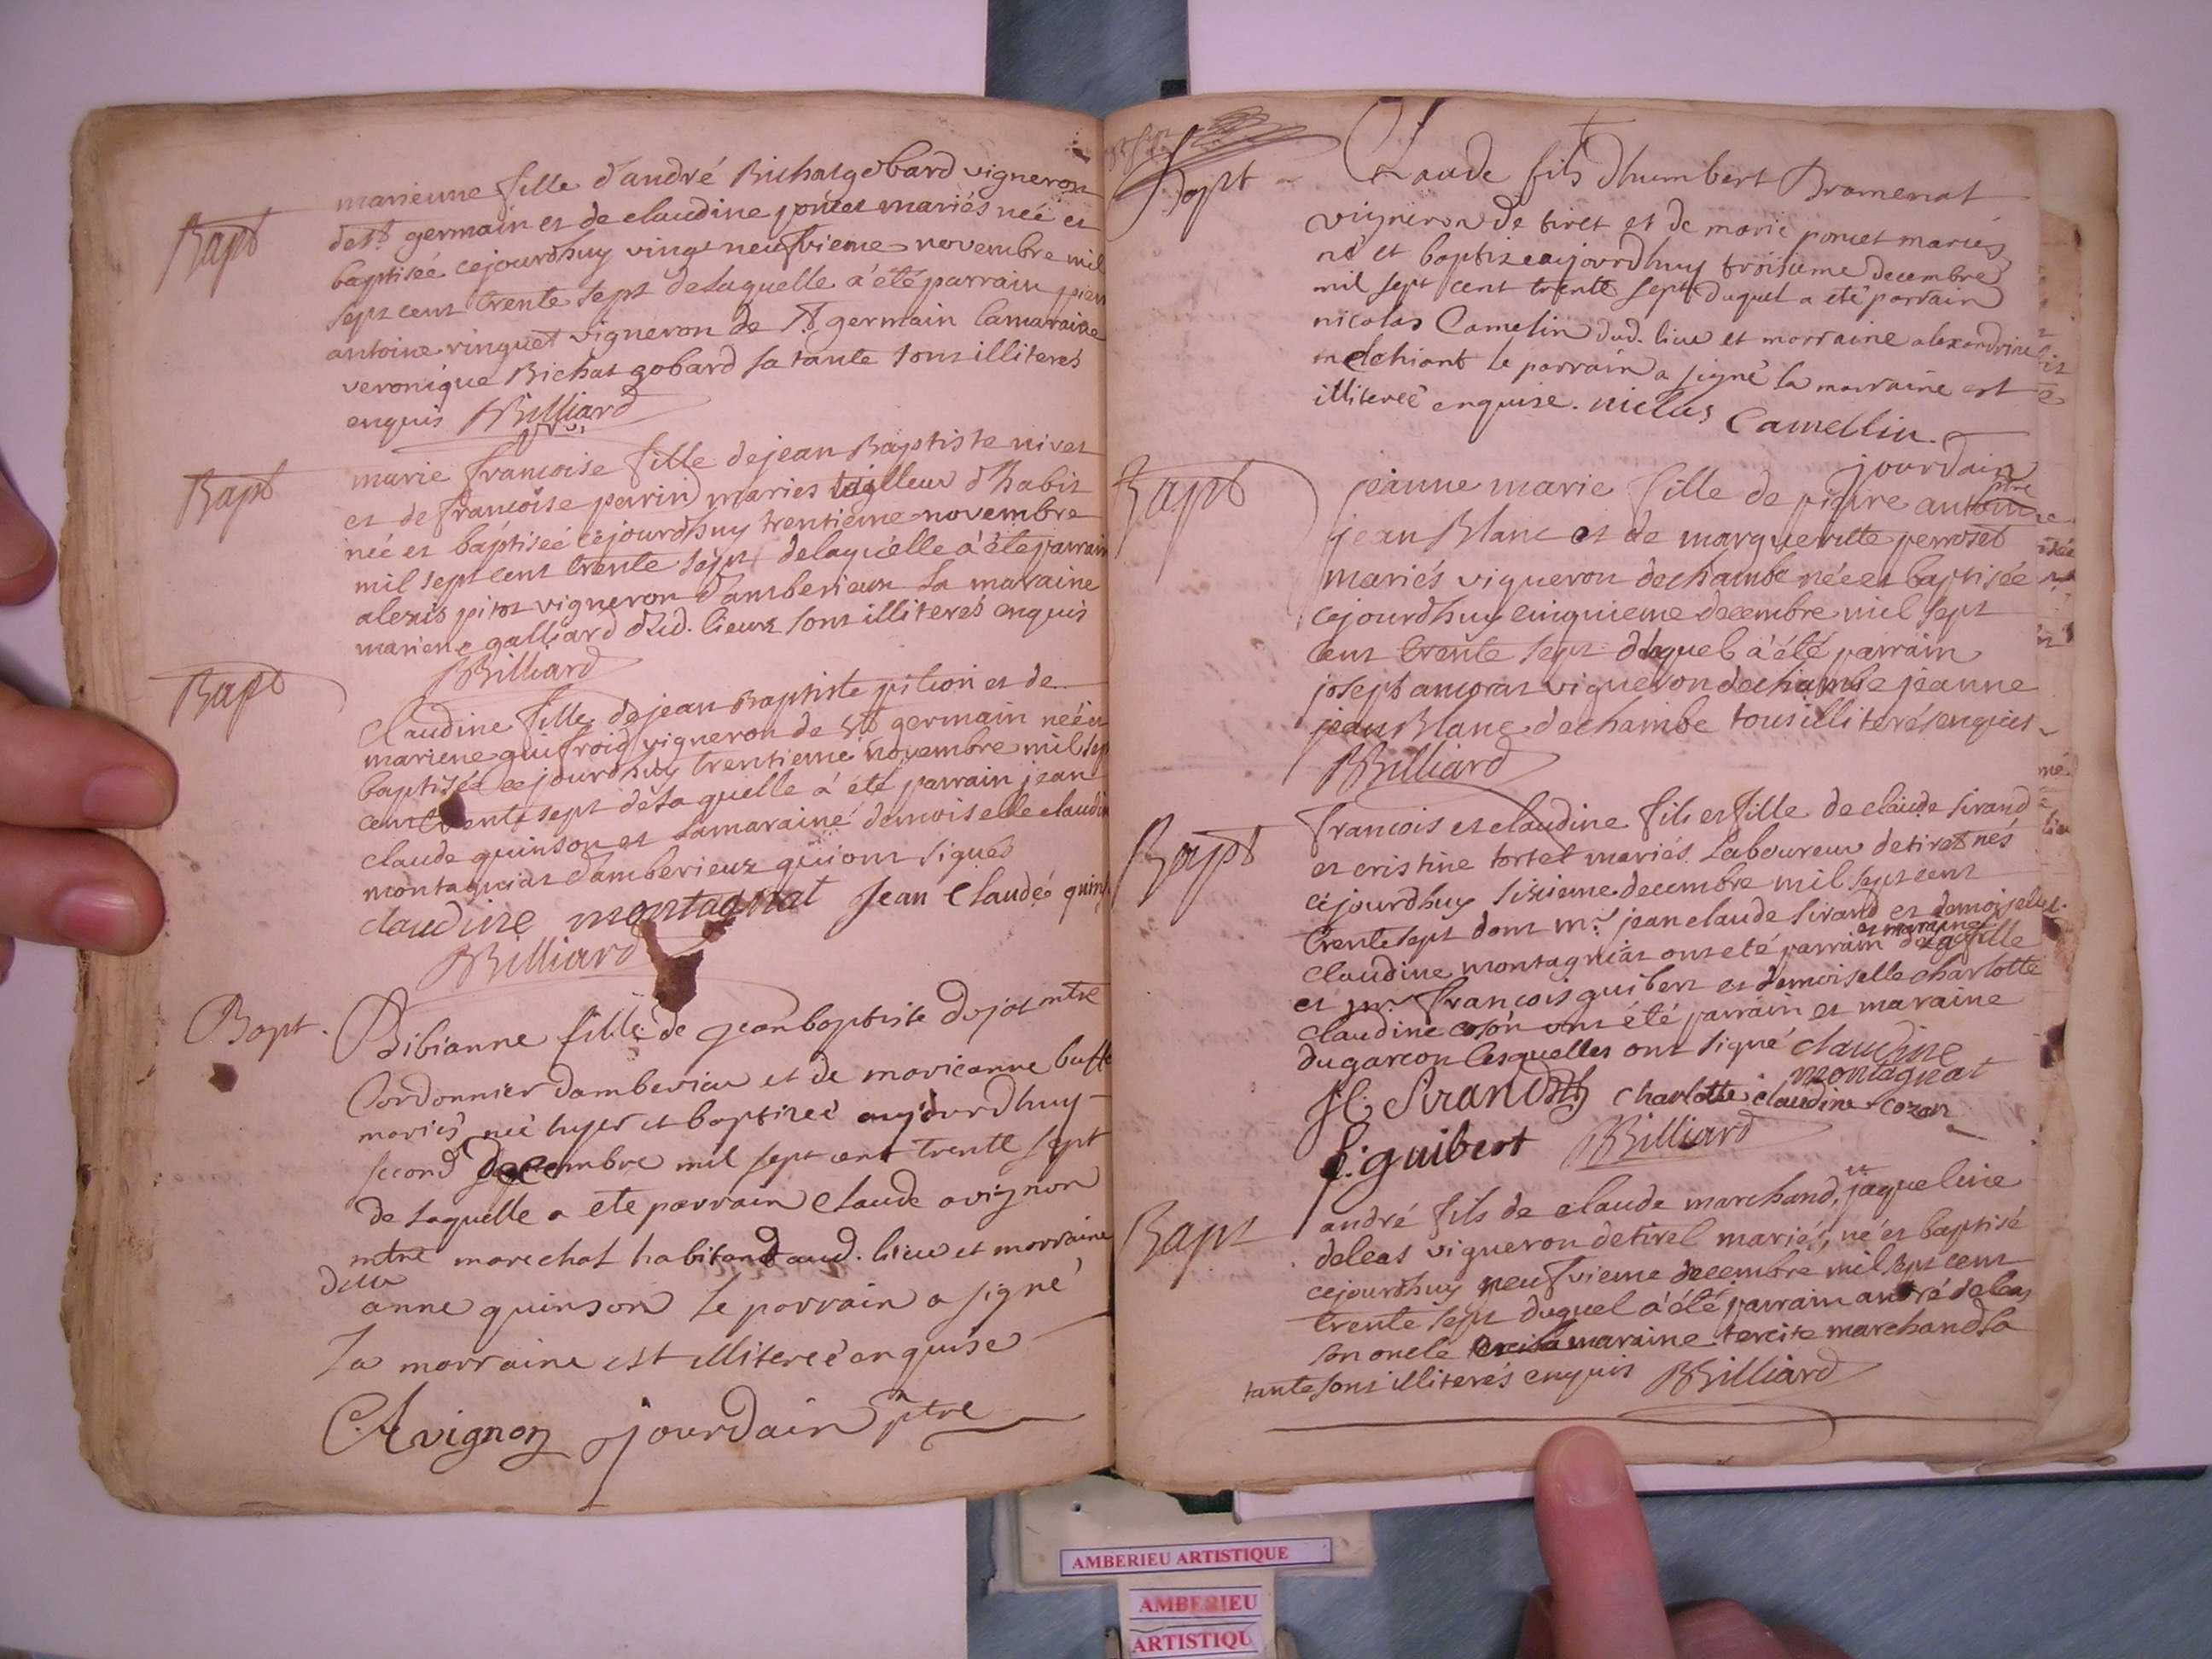 Bapt
marienne fille d'andré Bichat gobard vigneron
de st germain et de claudine poncet mariés neé et
baptiseé cejourdhuy vingt neufvieme novembre mil
sept cent trente sept de laquelle a été parrain
antoine ringuet vigneron de st germain la maraine
veronique Bichat gobard sa tante sont illiteres
enquis Billiard
Bapt
marie francoise fille de jean Baptiste nivet
et de francoise perrin mariés tailleur d'habit
neé et baptiseé cejourdhuy trentieme novembre
mil sept cent trente sept delaquelle a été parrain
alexis pitot vigneron d'amberieux la maraine
mariene galliard dud. lieux sont illiterés enquis
Billiard
Bapt
Claudine fille de jean Baptiste pition et de
mariene guifroid vigneron de st germain neé et
baptiseé cejourdhuy trentieme novembre mil sept
cent trente sept de laquelle a été parrain jean
claude quinson et la maraine demoiselle claudine
montagniat d'amberieux qui ont signés
claudine montagnat Jean Claude
Billiard
Bapt.
Bibianne fille de Jean baptiste dujat mtre
Cordonnier damberieu et de marieanne
mariés neé hyer et baptizeé aujourdhuy
second decembre mil sept cent trente sept
de laquelle a eté parrain Claude avignon
mtre marechal habitant aud. lieu et marraine
dlle
anne quinson le parrain a signé
la marraine est illitereé enquise
C. Avignon jourdain ptre
Bapt
Claude fils dhumbert Bramenat
vigneron de tiret et de marie poncet mariés
né et baptizé aujourdhuy troisieme decembre
mil sept cent trente sept duquel a eté parrain
nicolas Camelin dud. lieu et marraine alexandrine
melchiant le parrain a signé la marraine est
illitereé enquise. niclas Camellin.
jourdain
ptre
Bapt
jeanne marie fille de pierre antoine
jean Blanc et de marguerite perroset
mariés vigneron de chambe neé et baptisée
cejourdhuy cinquieme decembre mil sept
cent trente sept duquel a été parrain
joseph amprat vigneron de chambe jeanne
jean Blanc de chambe tous illiterés enquis
Billiard
Bapt
francois et claudine fils et fille de claude sirand
et cristine tortel mariés laboureur de tiret nés
cejourdhuy sixieme decembre mil sept cent
trente sept dont mr. jean claude sirand et demoiselle
et maraine
claudine montagniat ont eté parrain de la fille
et mr. francois guibert et demoiselle charlotte
claudine cozon ont été parrain et maraine
du garcon lesquelles ont signé claudine
montagnat
J C. Sirand charlotte claudine cozon
f. guibert Billiard
Bapt
et
andré fils de claude marchand, jaqueline
deleas vigneron de tirel mariés, né et baptisé
cejourdhuy neufvieme decembre mil sept cent
trente sept duquel a été parrain andré deleas
son oncle la maraine tercite marchand sa
tante sont illiterés enquis Billiard
AMBERIEU ARTISTIQUE
AMBERIEU
ARTISTIQU